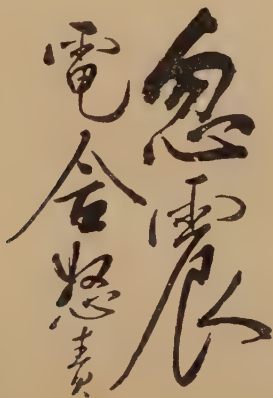 忽震
電合怒責